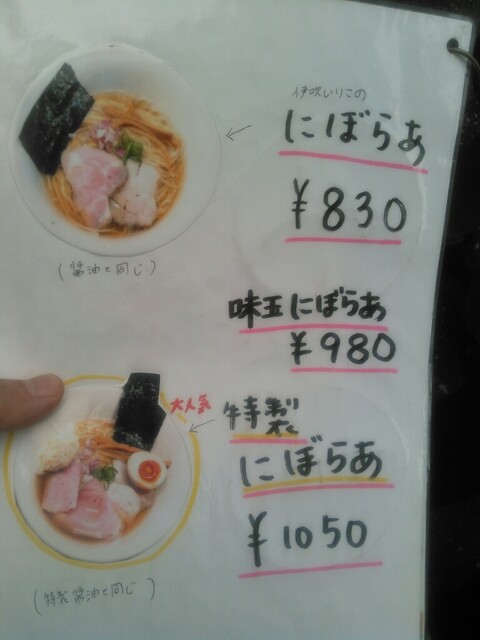 伊吹いりこの
にぼらあ
¥830
(醤油と同じ)
味玉にぼらあ
¥980
大人気
特製
にぼらあ
¥1050
(特製醤油と同じ)